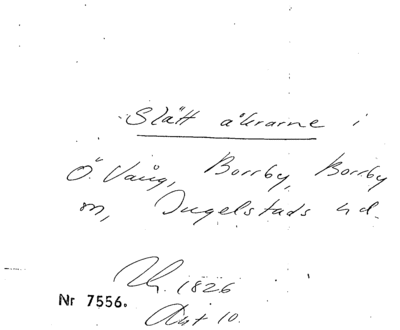 Slätt åkrarne i
Ö. Vång, Borrby, Borrby
m, Ingelstads hd.
1826
Nr 7556.
Akt 10.